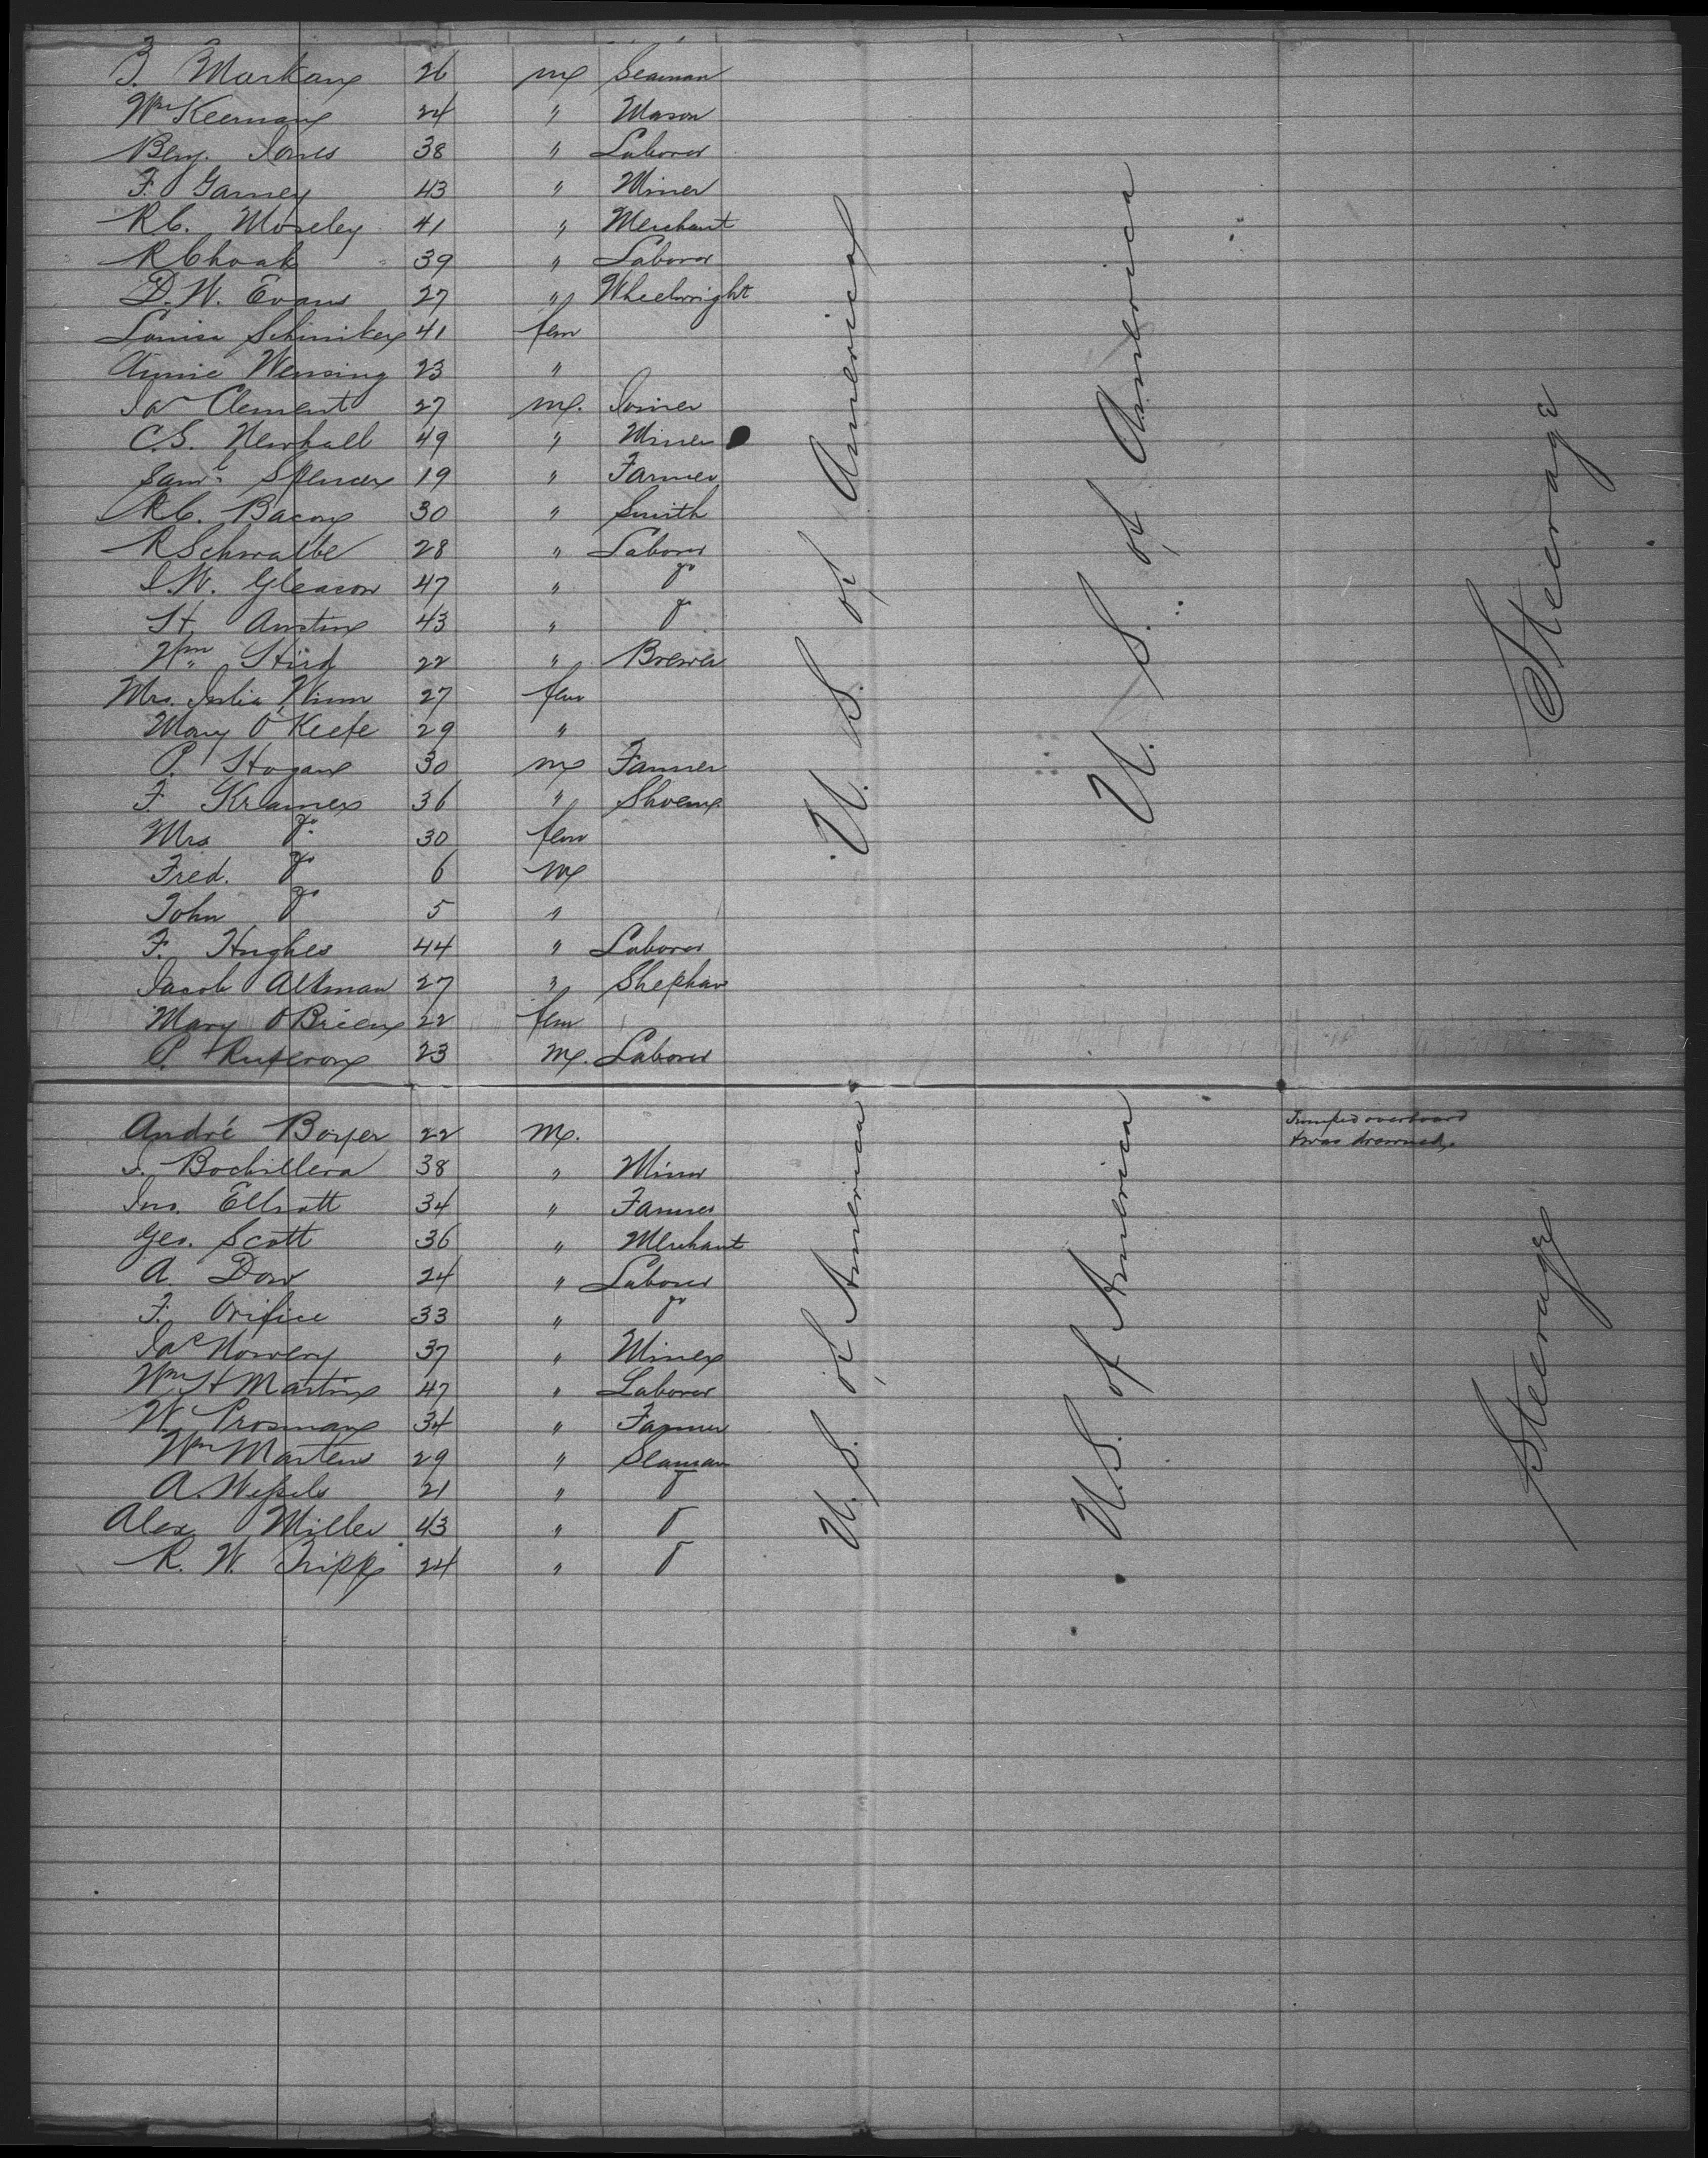 B. Markan 26 m Seaman
Wm Keernan 24 " Mason
Benj. Jones 38 " Laborer
F. Garney 43 " Miner
R.C. Moseley 41 " Merchant
R Choak 39 " Laborer
D.W. Evans 27 " Wheelwright
Louisa 41 fem
Annie Wensing 23 "
Jas Clement 27 m. Joiner
C.S. Newhall 49 " Miner
Saml Spencer 19 " Farmer
R.C. Bacon 30 " Smith
R Schwalbe 28 " Laborer
J.W. Gleason 47 " do
H. Austin 43 " do
Wm Hird 22 " Brewer
Mrs. Julia Winn 27 fem
Mary O'Keefe 29 "
P. Hogan 30 m Farmer
F. Kramer 36 " Shoem
Mrs do 30 fem
Fred. do 6 m
John do 5 "
F. Hughes 44 " Laborer
Jacob Altman 27 "
Mary O'Brien 22 fem
P. 23 m. Laborer
U. S. of America
U. S. of America
Steerage
André Boyer 22 m. Jumped overboard
& was drowned,
J. Bochillera 38 " Miner
Jno. Elliott 34 " Farmer
Geo. Scott 36 " Merchant
A. Dow 24 " Laborer
F. Orifice 33 " do
Jas Nowery 37 " Miner
Wm H Martin 47 " Laborer
W. Prosman 34 " Farmer
Wm Martens 29 " Seaman
A. Wessels 21 " do
Alex Miller 43 " do
R. W. Tripp 24 " do
U. S. of America
U. S. of America
Steerage